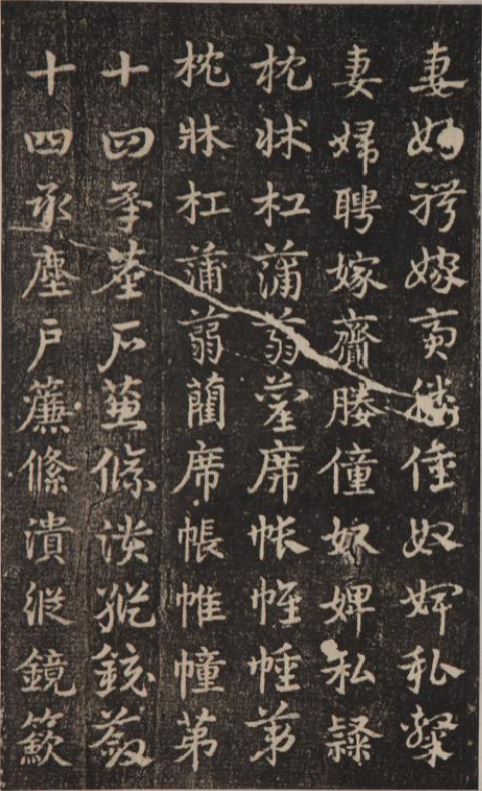 妻婦聘嫁齎媵僮奴婢私隸
妻婦聘嫁齎媵僮奴婢私隸
枕牀杠蒲蒻藺席帳帷幢弟
枕牀杠蒲蒻藺席帳帷幢弟
十四承塵戶簾絛潰縱鏡籢
十四承塵戶簾絛潰縱鏡籢